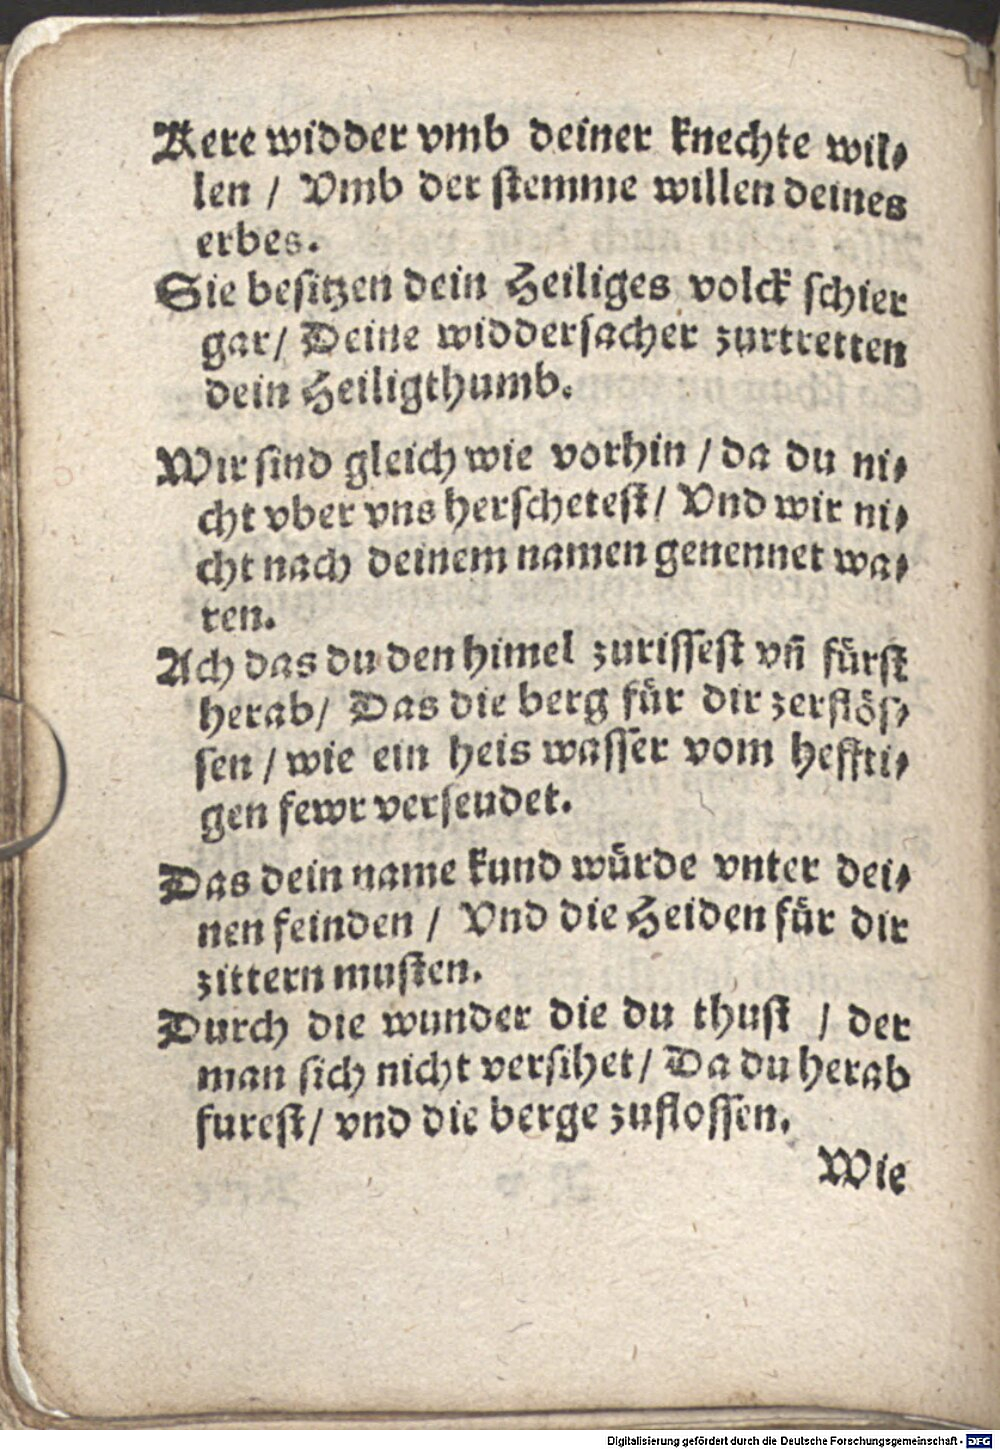 Kere widder vmb deiner knechte wil⸗
len / Vmb der stemme willen deines
erbes.
Sie besitzen dein Heiliges volck schier
gar/ Deine widdersacher zurtretten
dein Heiligthumb.
Wir sind gleich wie vorhin / da du ni⸗
cht vber vns herschetest/ Vnd wir ni⸗
cht nach deinem namen genennet wa⸗
ren.
Ach das du den himel zurissest vñ fürst
herab/ Das die berg für dir zerflös⸗
sen / wie ein heis wasser vom heffti⸗
gen fewr verseudet.
Das dein name kund würde vnter dei⸗
nen feinden / Vnd die Heiden für dir
zittern musten.
Durch die wunder die du thust / der
man sich nicht versihet/ Da du herab
furest/ vnd die berge zuflossen.
Wie
Digitalisierung gefördert durch die Deutsche Forschungsgemeinschaft - DFG